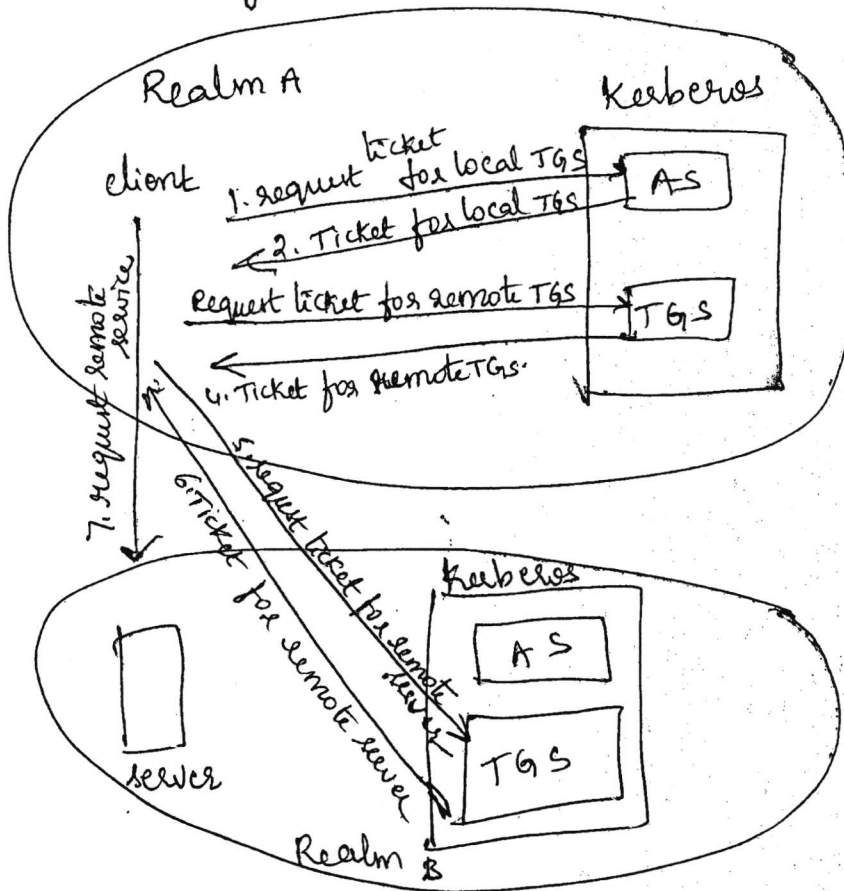 Realm A
Kerberos
client
1. request ticket for local TGS
AS
2. Ticket for local TGS
Request ticket for remote TGS
TGS
4. Ticket for remote TGS.
7. request remote
service
5. request ticket for remote
server
6. Ticket for remote server
Kerberos
AS
TGS
server
Realm B